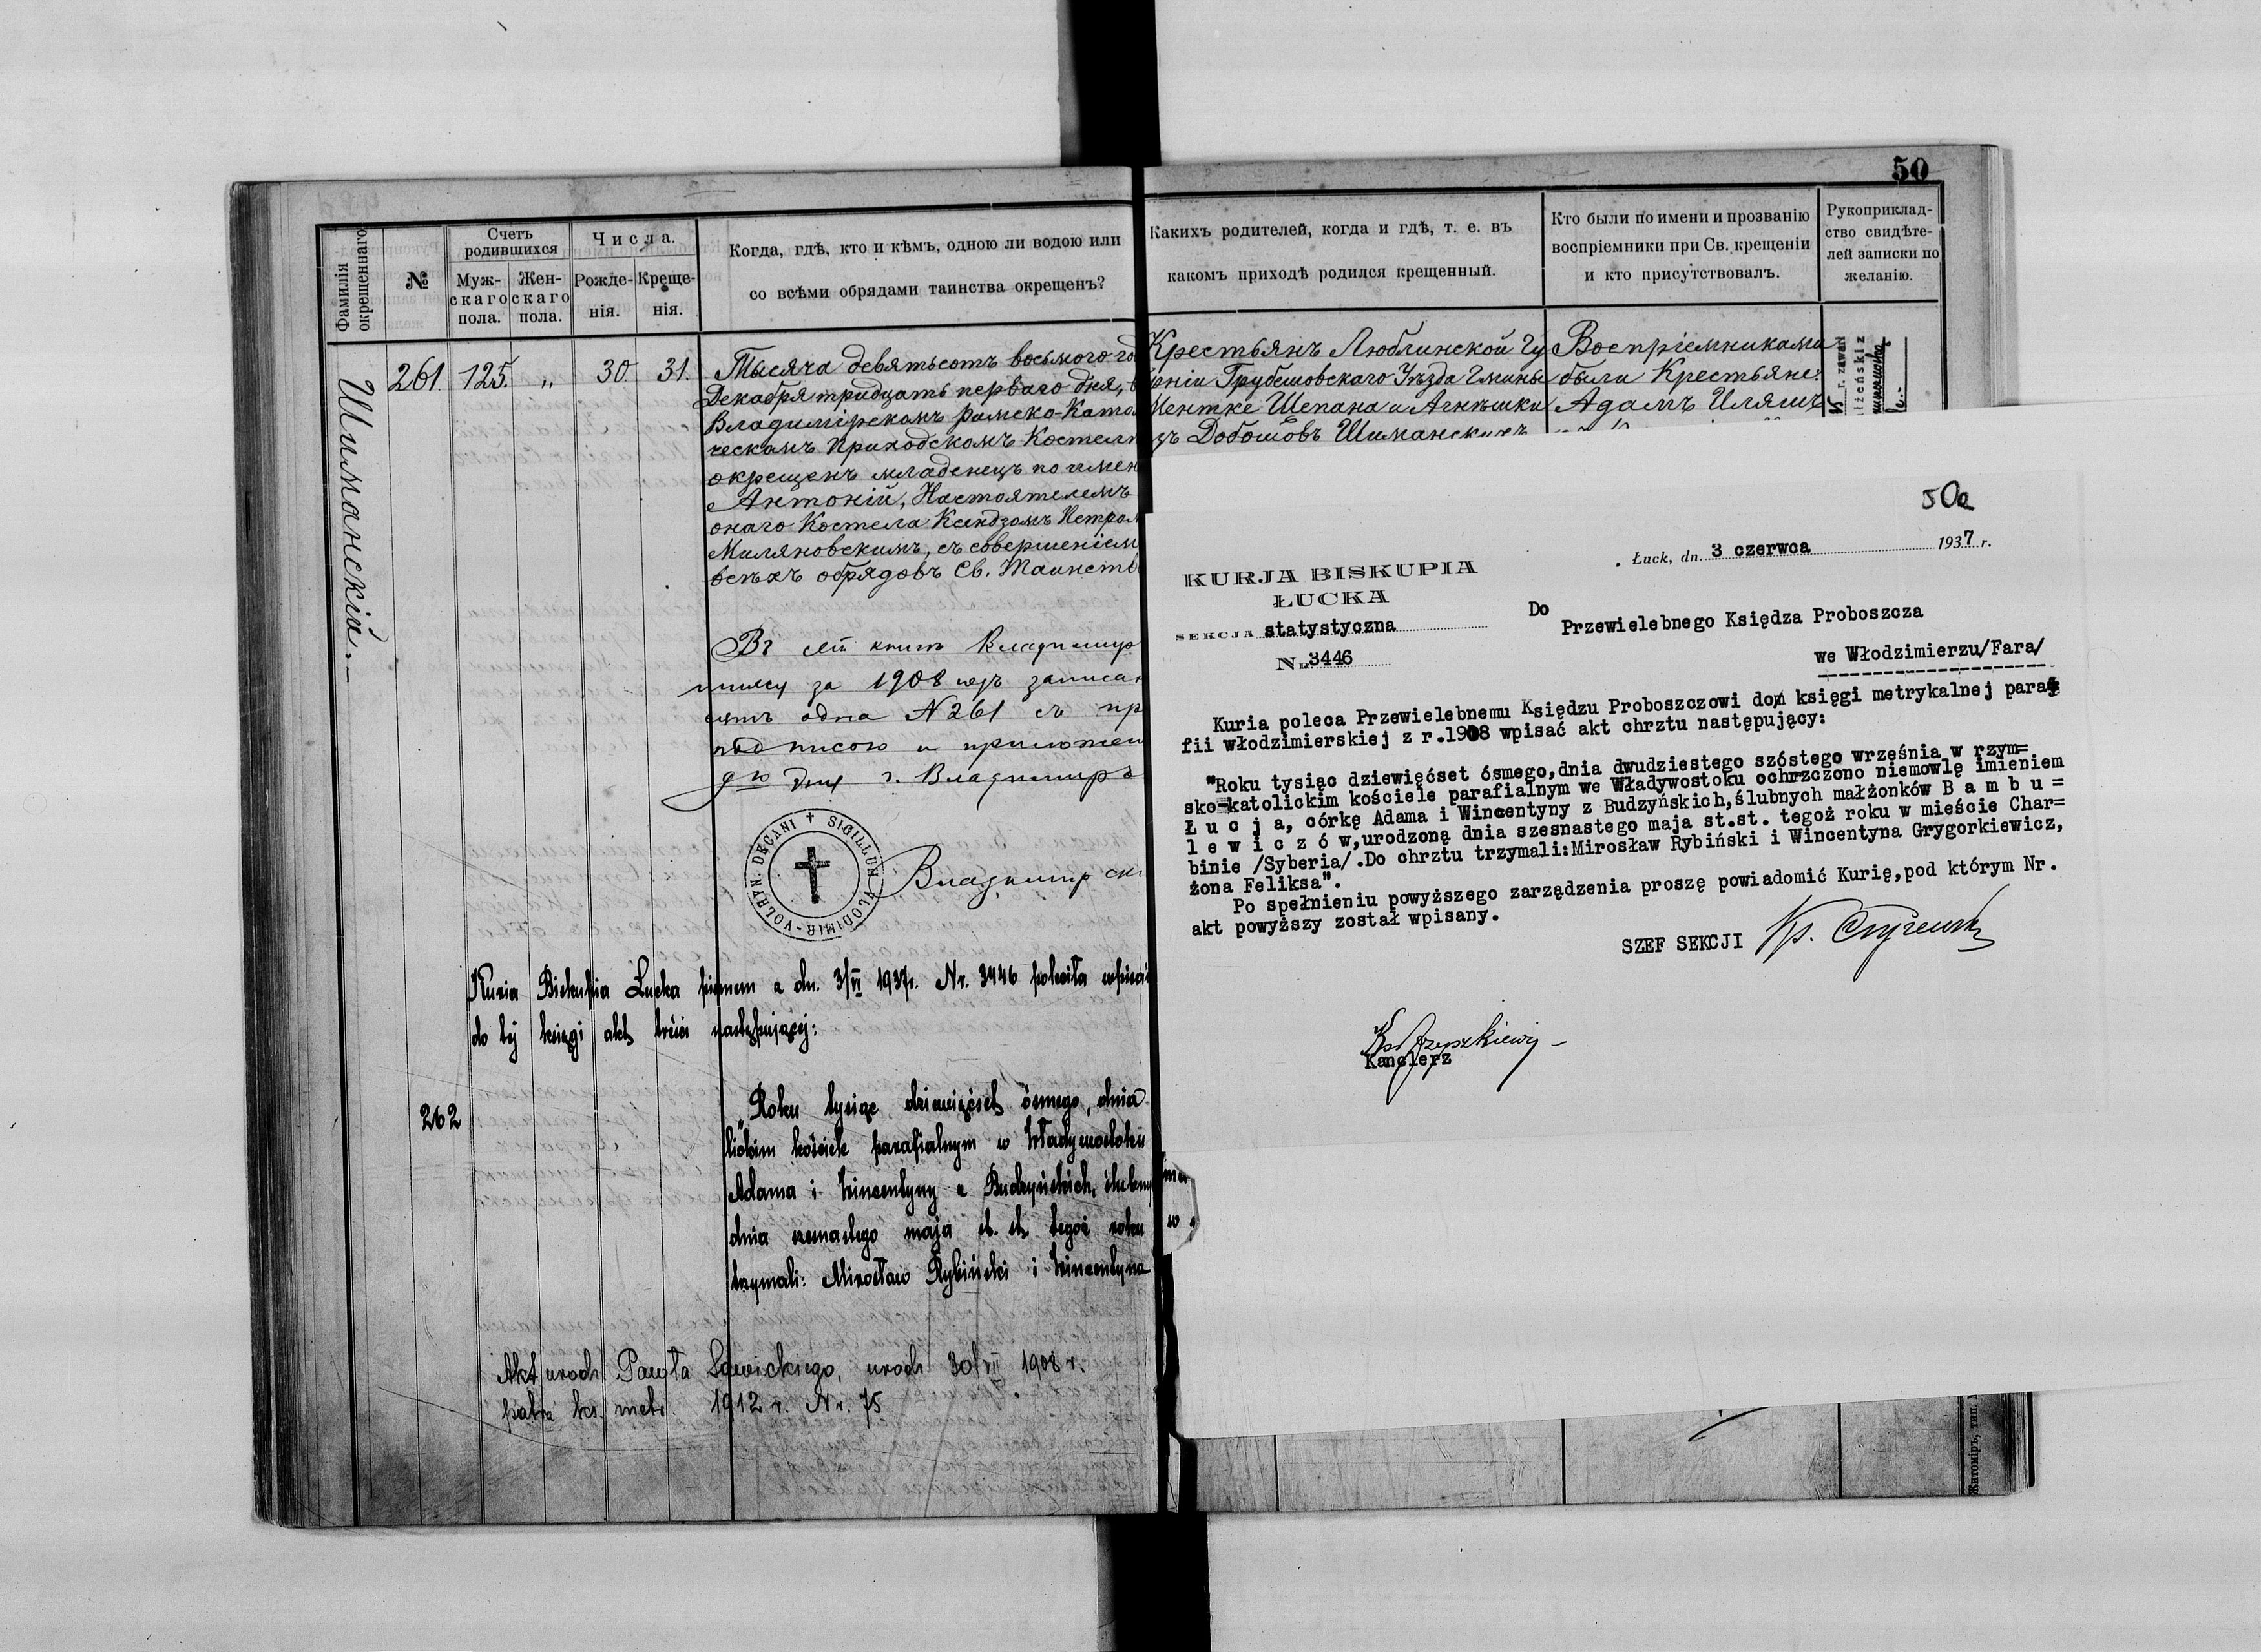 50
Фамилія окрещеннаго.
№
Счетъ родившихся
Мужскаго пола.
Женскаго пола.
Числа.
Рожденія.
Крещенія.
Когда, гдѣ, кто и кѣмъ, одною ли водою или
со всѣми обрядами таинства окрещенъ?
Какихъ родителей, когда и гдѣ, т. е. въ
какомъ приходѣ родился крещенный.
Кто были по имени и прозванію
воспріемники при Св. крещеніи
и кто присутствовалъ.
Рукоприклад-
ство свидѣте-
лей записки по
желанію.
Шиманскій.–
261. 125. „ 30 31.
Тысяча девятьсотъ восьмого го
Декабря тридцать перваго дня, в
Владимірскомъ Римско-Като
ческомъ Приходскомъ Костелѣ
окрещенъ младенецъ по имен
Антоній, Настоятелемъ
онаго Костела Ксендзомъ Петром
Миляновскимъ, съ совершеніем
всѣхъ обрядовъ Св. Таинств
Крестьянъ Люблинской Гу
берніи Грубешовскаго Уѣзда Гмины
Ментке Щепана и Агнѣшки
зъ Добошовъ Шиманскихъ
Воспріемниками
были Крестьяне:
Адамъ Иляшъ
r. zawarł
z
Въ сей книгѣ Владимир
за 1908 годъ записан
одна N 261 съ пр
подписою и приложен
дня г. Владимиръ
SIGILLUM VLODIMIR-VOLHYN. DECANI
Владимирски
Kuria Biskupia Łucka pismem z dn. 3/VI 1937r. Nr. 3446 poleciła wpisać
do tej księgi akt treści następującej:
262
„Roku tysiąc dziewięćset ósmego, dnia
lickim kościele parafialnym w Władywostoku
Adama i Wincentyny z Budzyńskich, ślubny
dnia szesnastego maja st. st. tegoż roku w
trzymali: Mirosław Rybiński i Wincentyna
Akt urodz. Pawła Sawickiego, urodz. 30/VII 1908 r.
patrz ks. metr. 1912 r. Nr. 75
50a
Łuck, dn. 3 czerwca 1937 r.
KURJA BISKUPIA
ŁUCKA
SEKCJA statystyczna
Nr. 3446
Do
Przewielebnego Księdza Proboszcza
we Włodzimierzu/Fara/
Kuria poleca Przewielebnemu Księdzu Proboszczowi do księgi metrykalnej para=
fii włodzimierskiej z r.1908 wpisać akt chrztu następujący:
"Roku tysiąc dziewięćset ósmego,dnia dwudziestego szóstego września w rzym=
sko-katolickim kościele parafialnym we Władywostoku ochrzczono niemowlę imieniem
Ł u c j a, córkę Adama i Wincentyny z Budzyńskich,ślubnych małżonków B a m b u =
l e w i c z ó w,urodzoną dnia szesnastego maja st.st. tegoż roku w mieście Char=
binie /Syberia/.Do chrztu trzymali:Mirosław Rybiński i Wincentyna Grygorkiewicz,
żona Feliksa".
Po spełnieniu powyższego zarządzenia proszę powiadomić Kurię,pod którym Nr.
akt powyższy został wpisany.
SZEF SEKCJI
Kanclerz